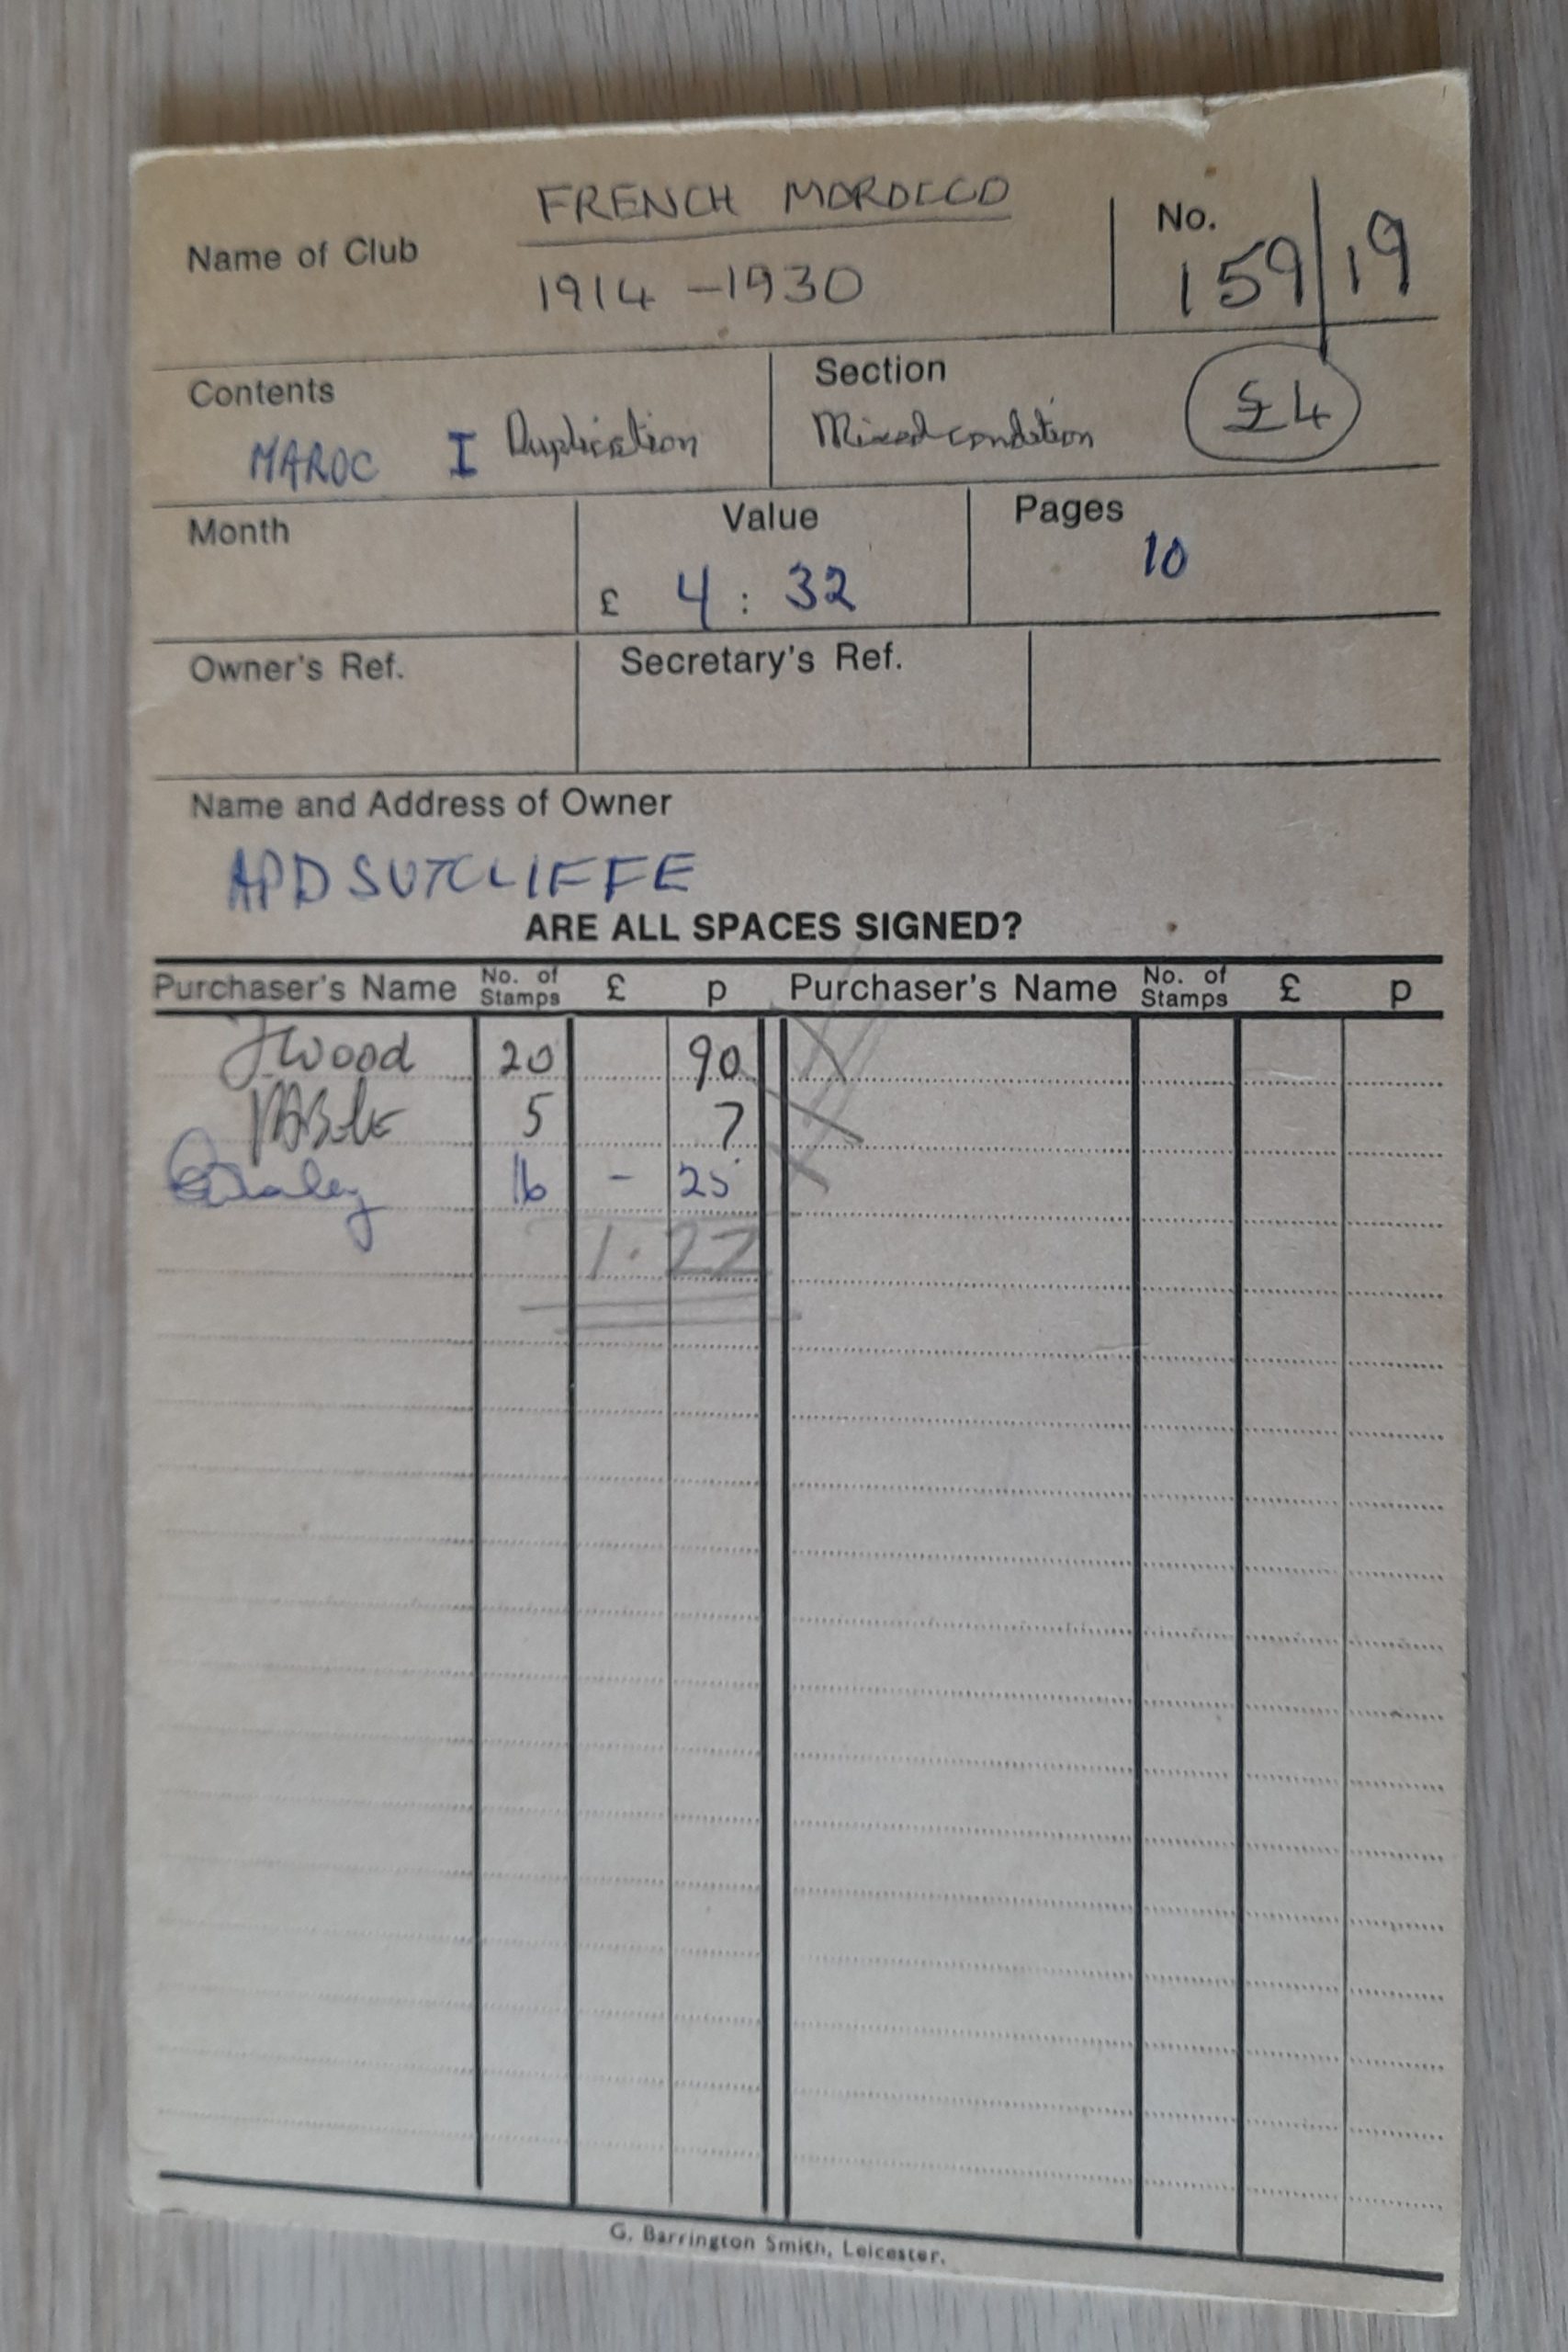 FRENCH MOROCCO
Name of Club
1914 - 1930
No.
159/19
Contents
MAROC I Duplication
Section
Mixed condition
£4
Month
Value
£ 4 : 32
Pages
10
Owner's Ref.
Secretary's Ref.
Name and Address of Owner
APD SUTCLIFFE
ARE ALL SPACES SIGNED?
Purchaser's Name No. of Stamps £ p Purchaser's Name No. of Stamps £ p
J Wood 20 90
5 7
16 - 25
1.22
G. Barrington Smith, Leicester.